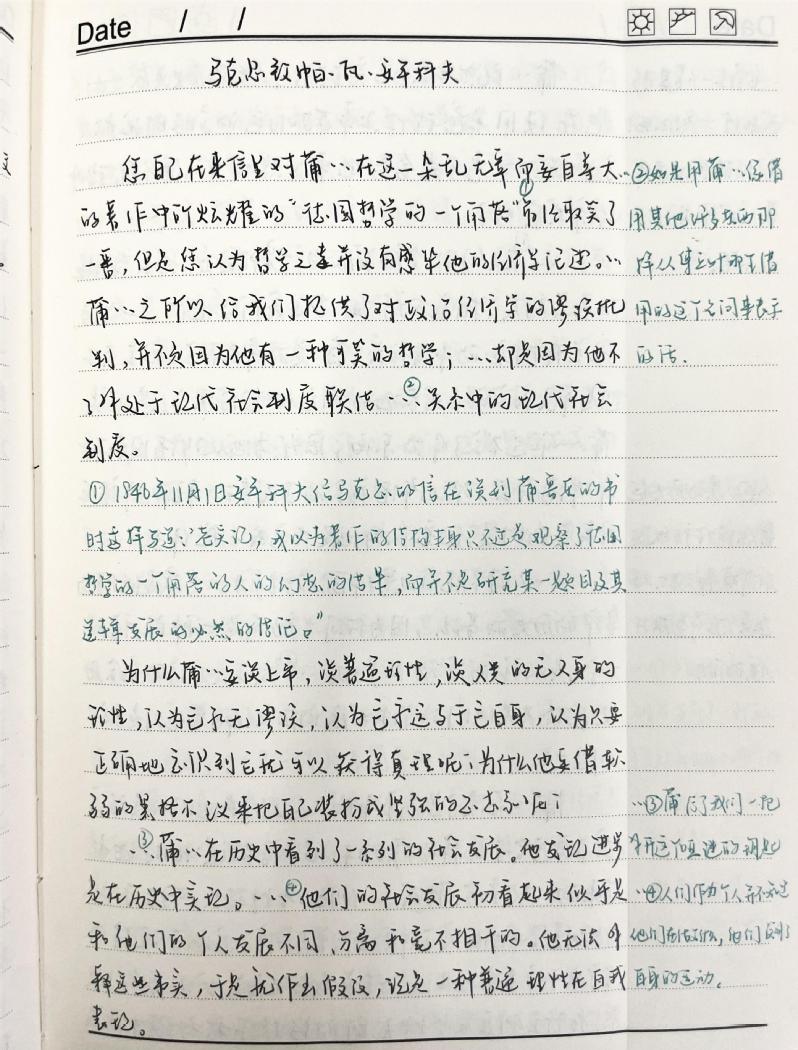 Date / /
马克思致帕·瓦·安年科夫
您自己在来信里对蒲…在这一杂乱无章而妄自尊大
的著作中所炫耀的“德国哲学的一个角落”①就取笑了
一番,但是您认为哲学之毒并没有感染他的经济学论述。…
蒲…之所以给我们提供了对政治经济学的谬误批
判,并不是因为他有一种可笑的哲学;…却是因为他不
了解处于现代社会制度联结…②关系中的现代社会
制度。
①1846年11月1日安年科夫给马克思的信在谈到蒲鲁东的书
时这样写道:“老实说,我以为著作的结构本身只不过是观察了德国
哲学的一个角落的人的幻想的结果,而并不是研究某一题目及其
逻辑发展的必然的结论。”
为什么蒲…要谈上帝,谈普遍理性,谈人类的无人身的
理性,认为它永无谬误,认为它永远等于它自身,认为只要
正确地意识到它就可以获得真理呢?为什么他要借软
弱的黑格尔主义来把自己装扮成坚强的思想家呢?
…③蒲…在历史中看到了一系列的社会发展。他发现进步
是在历史中实现。…④他们的社会发展初看起来似乎是
和他们的个人发展不同、分离和毫不相干的。他无法解
释这些事实,于是就作出假设,说是一种普遍理性在自我
表现。
…②如果用蒲…像借
用其他许多东西那
样从傅立叶那里借
用的这个名词来表示
的话.
…③蒲给了我们一把
解开这个谜的钥匙
…④人们作为个人并不知道
他们在做什么,他们误解了
自身的运动.